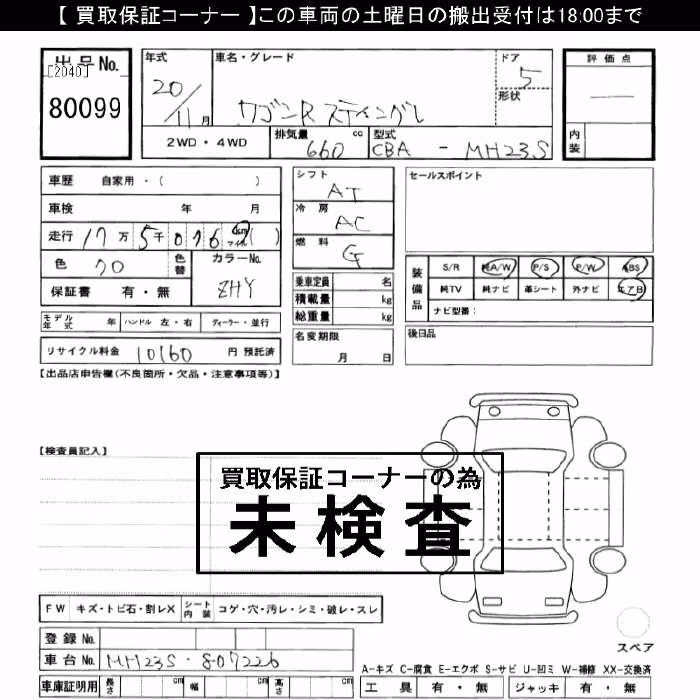 【 買取保証コーナー 】この車両の土曜日の搬出受付は18:00まで
出品No.
[2040]
80099
年式
20/11月
車名・グレード
ワゴンR スティングレ
ドア
5
形状
2WD・4WD
排気量 660 cc
型式 CBA - MH23S
評価点
—
内装
車歴 自家用・( )
車検 年 月
走行 17万5千076 km マイル ( )
色 クロ
色替
カラーNo. ZHY
保証書 有・無
モデル年式 年 ハンドル 左・右 ディーラー・並行
リサイクル料金 10160 円 預託済
シフト AT
冷房 AC
燃料 G
乗車定員 名
積載量 kg
総重量 kg
名変期限
月 日
セールスポイント
装備品
S/R 純A/W P/S P/W ABS
純TV 純ナビ 革シート 外ナビ エアB
ナビ型番:
後日品
【出品店申告欄(不良箇所・欠品・注意事項等)】
【検査員記入】
買取保証コーナーの為
未検査
FW キズ・トビ石・割レX シート内装 コゲ・穴・汚レ・シミ・破レ・スレ
登録No.
車台No. MH23S-807226
車庫証明用 長さ cm 幅 cm 高さ cm
スペア
A-キズ C-腐食 E-エクボ S-サビ U-凹ミ W-補修 XX-交換済
工具 有・無 ジャッキ 有・無